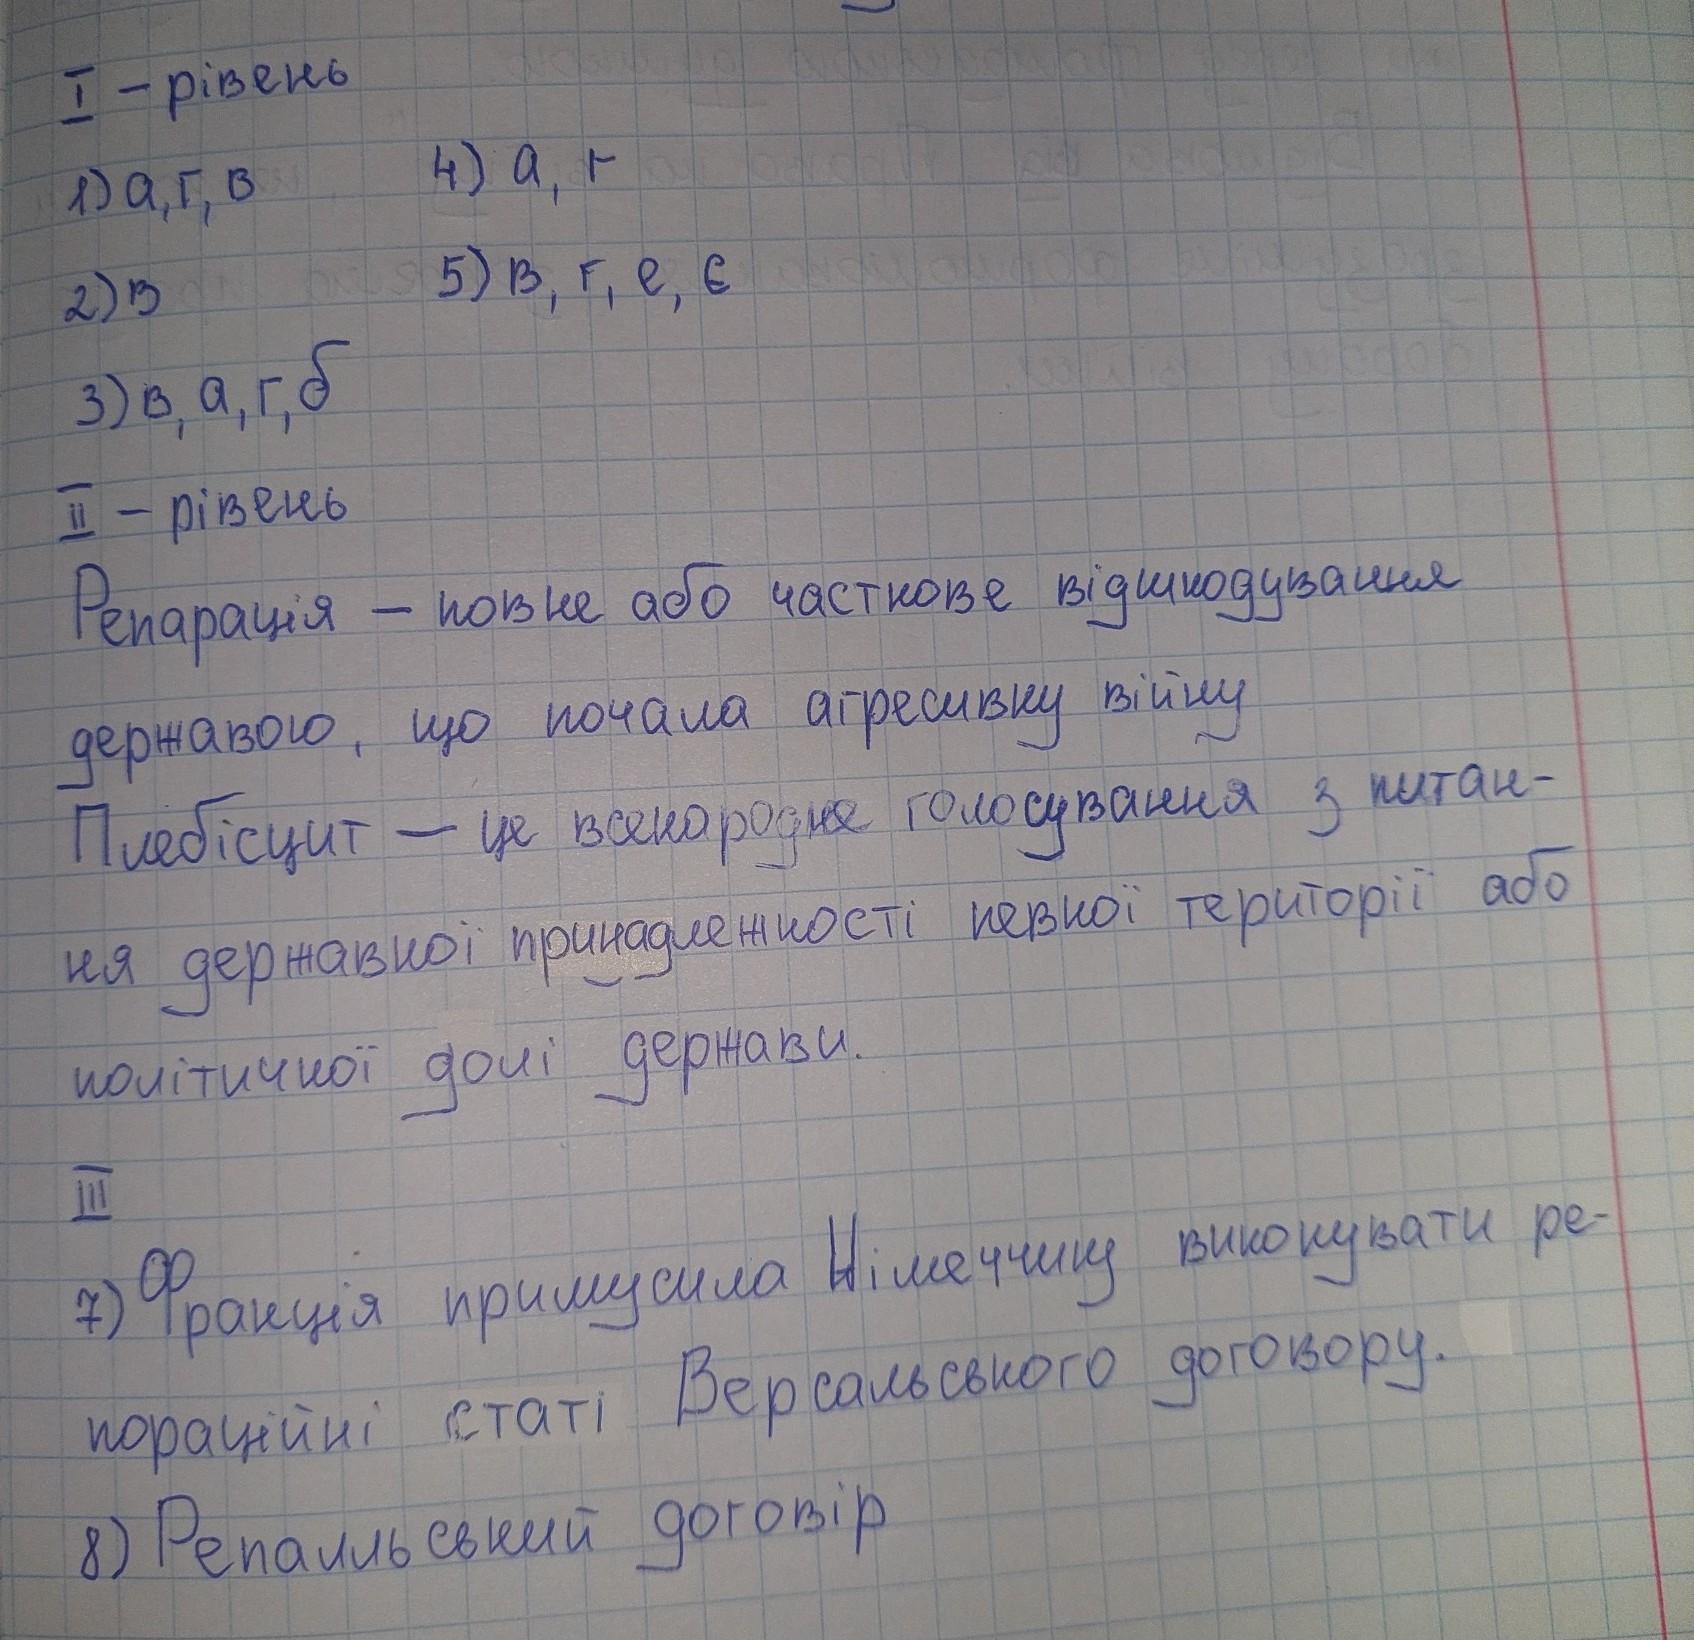 I - рівень
1) а, г, в 4) а, г
2) в 5) в, г, е, є
3) в, а, г, б
II - рівень
Репарація - повне або часткове відшкодування
державою, що почала агресивну війну
Плебісцит - це всенародне голосування з питан-
ня державної принадлежності певної території або
політичної долі держави.
III
7) Франція примусила Німеччину виконувати ре-
пораційні статі Версальського договору.
8) Репалльський договір